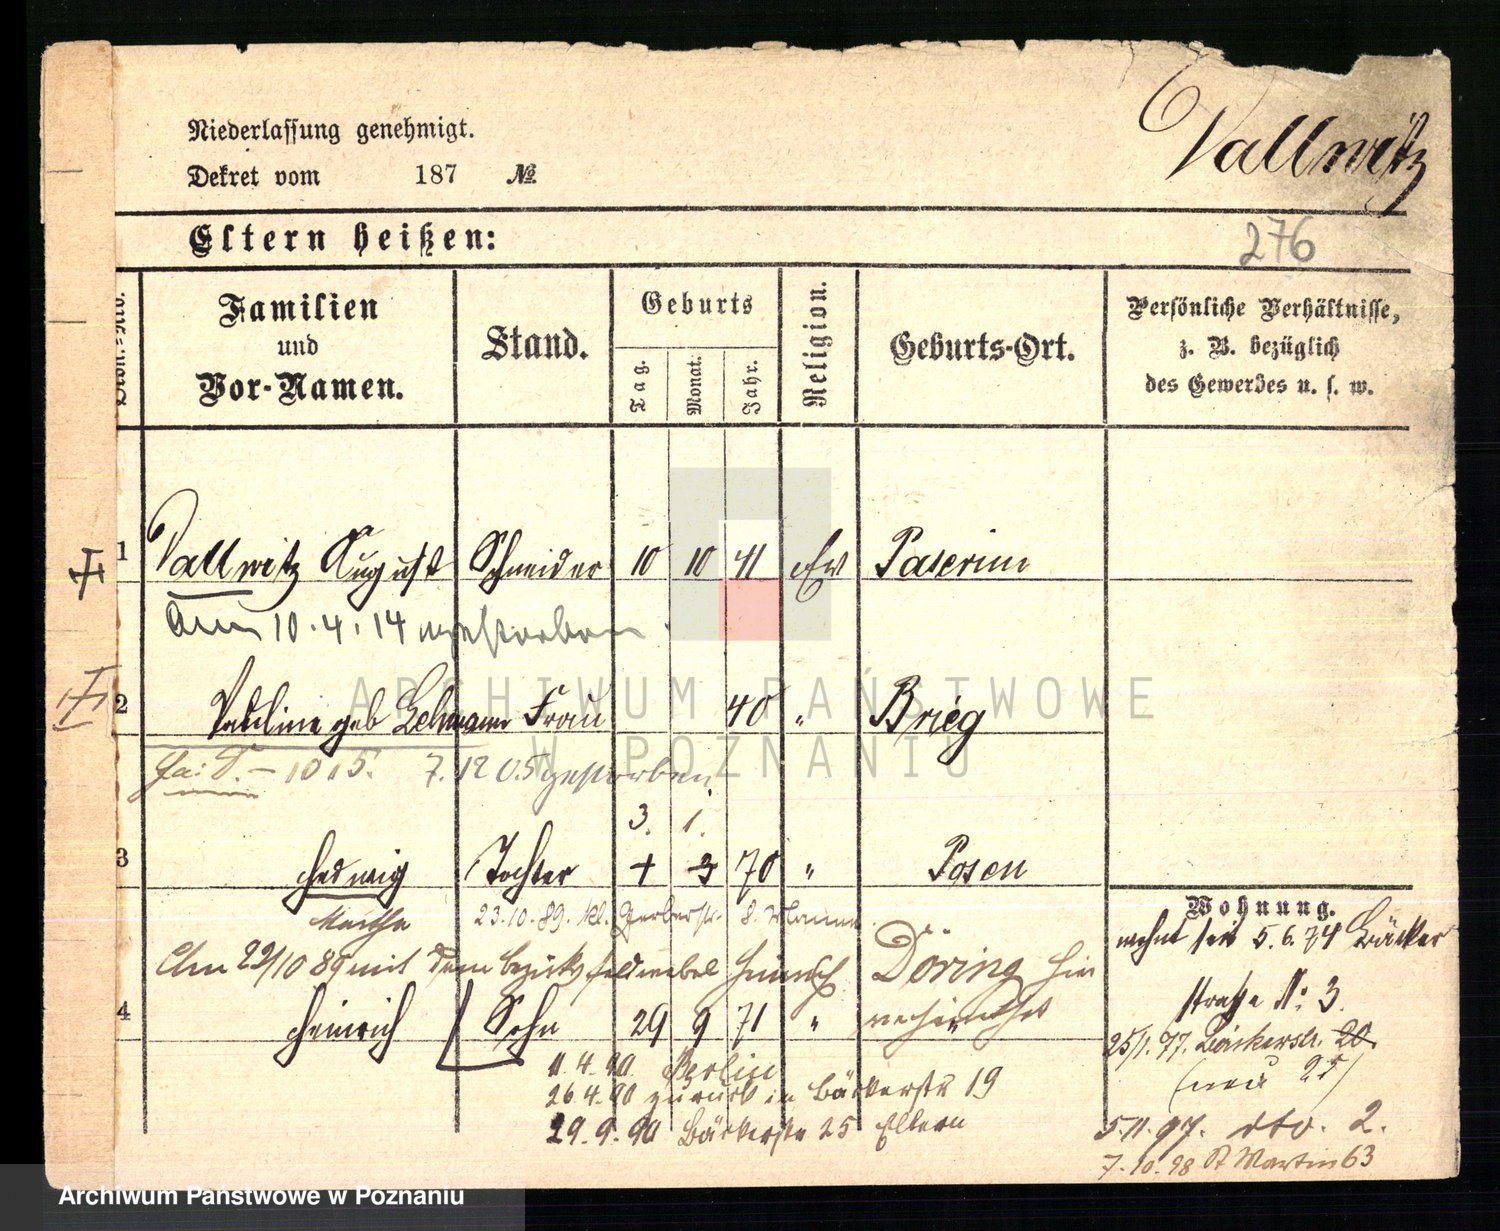 Vallwitz
Niederlassung genehmigt.
Dekret vom 187 №
Eltern heißen:
276
Ordn.-No.
Familien und Vor-Namen.
Stand.
Geburts
Tag. Monat. Jahr.
Religion.
Geburts-Ort.
Persönliche Verhältnisse, z. B. bezüglich des Gewerbes u. s. w.
1 Vallwitz August Schneider 10 10 41 Ev
Am 10.4.14 gestorben
2 Pauline geb Lehmann Frau 40 " Brieg
7.12 05 gestorben
3. 1.
3 Hedwig Tochter + 3 70 " Posen
Martha 23.10.89. kl. Gerberstr. 8.
Am 22/10 89 mit dem Bezirksfeldwebel Döring hier
4 Heinrich Sohn 29 9 71 " verheirathet
11.4.90 Berlin
26.4.90 zurück in Bäckerstr 19
29.9.90 Bäckerstr 25 Eltern
Wohnung.
wohnt seit 5.6.74 Bäcker
straße No 3.
25/1.77. Bäckerstr. 20
(neu 25)
5/1.97. dto. 2.
7.10.98 St Martin 63
ARCHIWUM PAŃSTWOWE
W POZNANIU
Archiwum Państwowe w Poznaniu